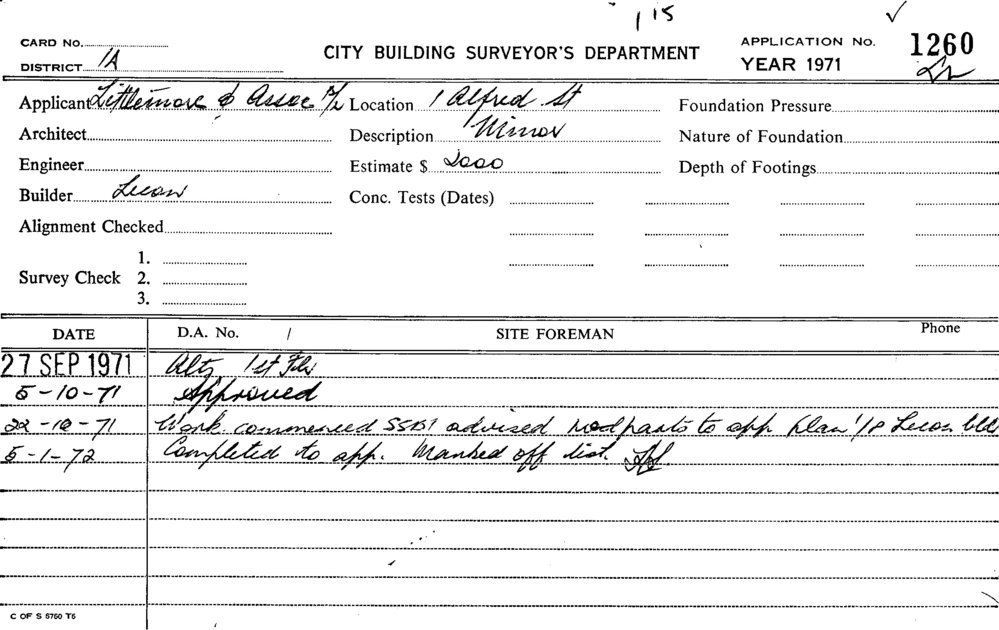 115
CARD No.
DISTRICT 1A
CITY BUILDING SURVEYOR'S DEPARTMENT
APPLICATION No. 1260
YEAR 1971
Applicant Littlemore & Assoc P/L Location 1 Alfred St Foundation Pressure
Architect Description Minor Nature of Foundation
Engineer Estimate $ 2000 Depth of Footings
Builder Lucon Conc. Tests (Dates)
Alignment Checked
1.
Survey Check 2.
3.
DATE D.A. No. / SITE FOREMAN Phone
27 SEP 1971 Altz 1st Flr
5-10-71 Approved
22-10-71 Work commenced advised to app plan Lucon
5-1-72 Completed to app. Marked off list.
C OF S 5750 T5